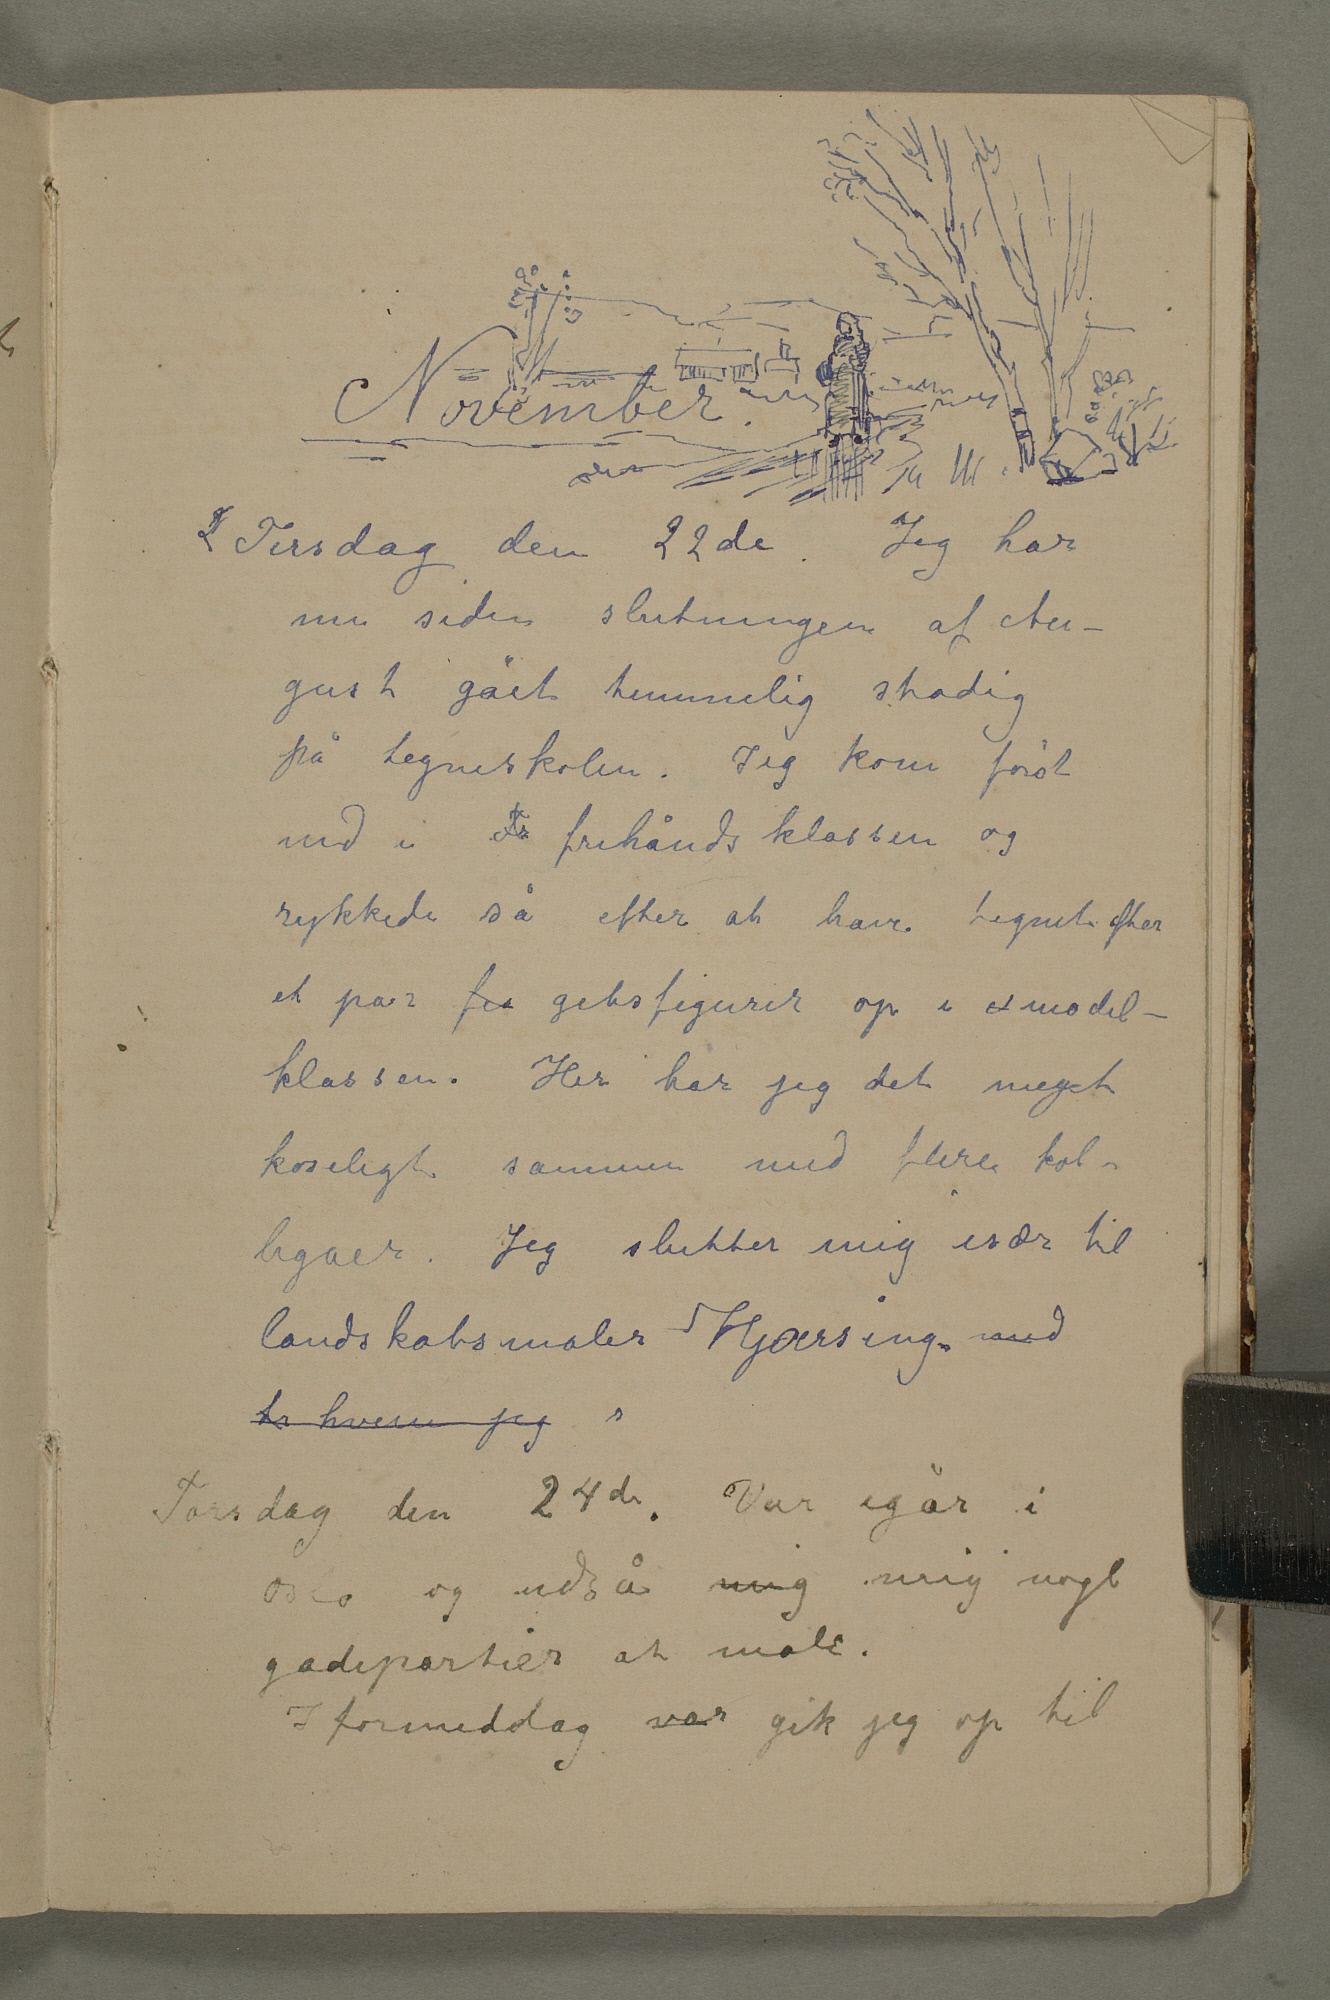 November.
Tirsdag den 22de. Jeg har
nu siden slutningen af Au-
gust gået temmelig stadig
på tegneskolen. Jeg kom først
ind i frihånds klassen og
rykkede så efter at have tegnet efter
et par fra gibsfigurer op i model-
klassen. Her har jeg det meget
koseligt sammen med flere kol-
legaer. Jeg slutter mig især til
landskabsmaler Hjærsing. med
hvem jeg
Torsdag den 24de. Var igår i
Oslo og udså mig mig nogle
gadepartier at male.
I formeddag var gik jeg op til